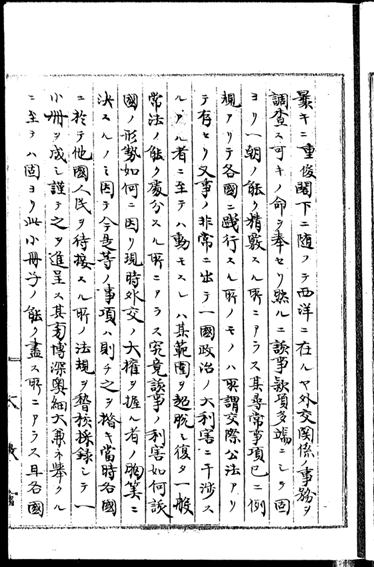 曩キニ重俊閣下ニ随フテ西洋ニ在ルヤ外交関係ノ事務ヲ
調査ス可キノ命ヲ奉セリ然ルニ該事款項多端ニシテ固
ヨリ一朝ノ能ク精覈スル所ニアラス其尋常事項已ニ例
規アリテ各國ニ践行スル所ノモノハ所謂交際公法アリ
テ存セリ又事ノ非常ニ出テ一國政治ノ大利害ニ干渉ス
ルアル者ニ至テハ動モスレハ其範囲ヲ超脱シ復タ一般
常法ノ能ク處分スル所ニアラス究竟該事ノ利害如何該
國ノ形勢如何ニ因リ現時外交ノ大權ヲ握ル者ノ胸筭ニ
決スルノミ因テ今是等ノ事項ハ則チ之ヲ措キ當時各國
ニ於テ他國人民ヲ待接スル所ノ法規ヲ稽核採録シテ一
小冊ヲ成シ謹テ之ヲ進呈ス其旁博深奥細大兼ネ挙クル
ニ至テハ固ヨリ此小冊子ノ能ク盡ス所ニアラス且各國